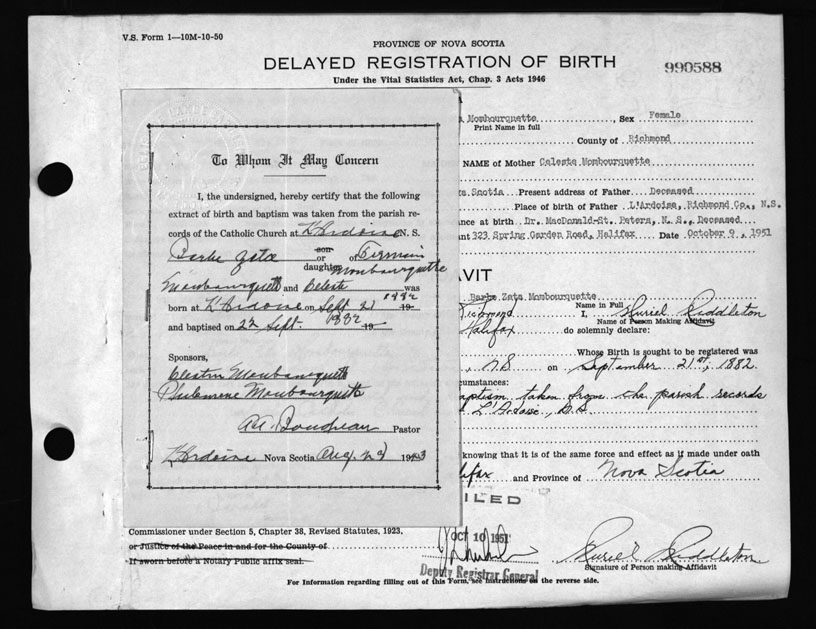 V.S. Form 1—10M-10-50
PROVINCE OF NOVA SCOTIA
DELAYED REGISTRATION OF BIRTH
990588
Under the Vital Statistics Act, Chap. 3 Acts 1946
Mombourquette, Sex Female
Print Name in full
County of Richmond
NAME of Mother Celeste Mombourquette
Scotia Present address of Father Deceased
Place of Birth of Father L'Ardoise, Richmond Co., N.S.
ance at birth Dr. MacDonald-St. Peters, N. S., Deceased
nt 323 Spring Garden Road, Halifax Date October 9, 1951
VIT
Barbe Zeta Mombourquette
Name in Full
I, Muriel Riddleton
Name of Person Making Affidavit
Halifax do solemnly declare:
Whose Birth is sought to be registered was
, NS on September 21st, 1882
cumstances:
aptism taken from the parish records
L'Ardoise, N.S.
knowing that it is of the same force and effect as if made under oath
lifax and Province of Nova Scotia
ILED
OCT 10 1951
Deputy Registrar General
Muriel Riddleton
Signature of Person making Affidavit
To Whom It May Concern
I, the undersigned, hereby certify that the following
extract of birth and baptism was taken from the parish re-
cords of the Catholic Church at L'Ardoise N. S.
Barbe Zeta son or daughter of Germain Mombourquette
Mombourquette and Celeste was
born at L'Ardoise on Sept. 21 1882 19
and baptised on 22 Sept. 1882 19
Sponsors,
Celestin Mombourquette
Philomene Mombourquette
Boudreau Pastor
L'Ardoise Nova Scotia Aug. 23 1943
Commissioner under Section 5, Chapter 38, Revised Statutes, 1923,
or Justice of the Peace in and for the County of
If sworn before a Notary Public affix seal.
For Information regarding filling out of this Form, see instructions on the reverse side.